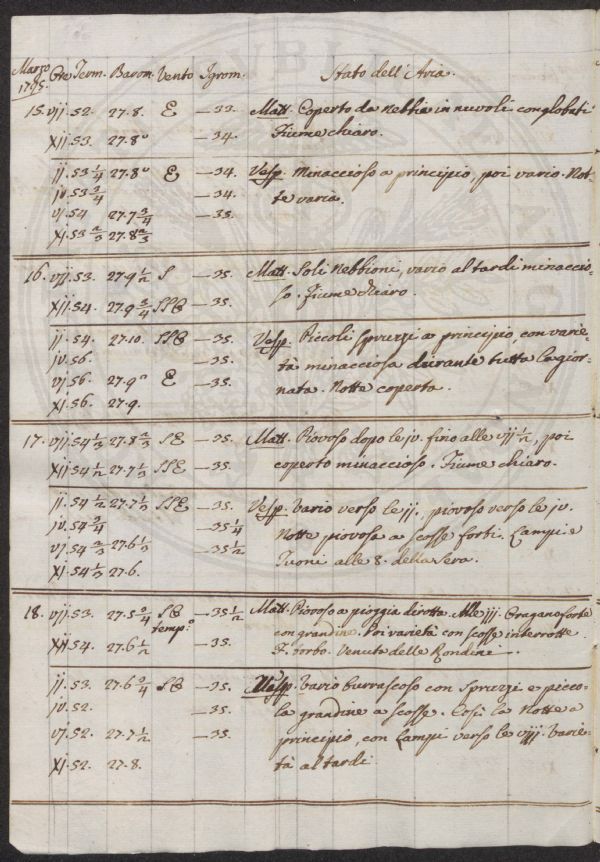 Marzo
1795. Ore Term. Barom. Vento Igrom. Stato dell'Aria.
15. vij. 52. 27.8. E —33. Matt. Coperto da nebbia in nuvoli conglobati
xij. 53. 27.8° —34. Fiume chiaro.
ij. 53 1/4 27.8° E —34. Vesp. Minaccioso a principio, poi vario. Not-
jv. 53 3/4 —34. te varia.
vj. 54 27.7 3/4 —35.
xj. 53 2/3 27.8 2/3
16. vij. 53. 27.9 1/2 S —35. Matt. Soli Nebbioni, vario al tardi minaccio-
xij. 54. 27.9 3/4 SSE —35. so. Fiume chiaro.
ij. 54. 27.10. SSE —35. Vesp. Piccoli spruzzi a principio, con varie-
jv. 56. —35. tà minacciosa durante tutta la gior-
vj. 56. 27.9° E —35. nata. Notte coperta.
xj. 56. 27.9.
17. vij. 54 1/3 27.8 2/3 SE —35. Matt. Piovoso dopo le jv. fino alle vij 1/2, poi
xij. 54 1/2 27.7 1/3 SSE —35. coperto minaccioso. Fiume chiaro.
ij. 54 1/2 27.7 1/3 SSE —35. Vesp. Vario verso le ij. piovoso verso le jv.
jv. 54 3/4 —35 1/4 Notte piovosa a scosse forti. Lampi e
vj. 54 2/3 27.6 1/3 —35 1/2 Tuoni alle 8. della sera.
xj. 54 1/3 27.6.
18. vij. 53. 27.5 3/4 SE —35 1/2 Matt. Piovoso a pioggia dirotta. Alle iij. Oragano forte
temp.° con grandine. Poi varietà con scosse interrotte.
xij. 54. 27.6 1/2 —35. F. torbo. Venuta delle Rondini.
ij. 53. 27.6 3/4 SE —35. Vesp. Vario burrascoso con spruzzi e picco-
jv. 52. —35. la grandine a scosse. Così la Notte a
vj. 52. 27.7 1/2 —35. principio, con Lampi verso le viij. Varie-
xj. 52. 27.8. tà al tardi.